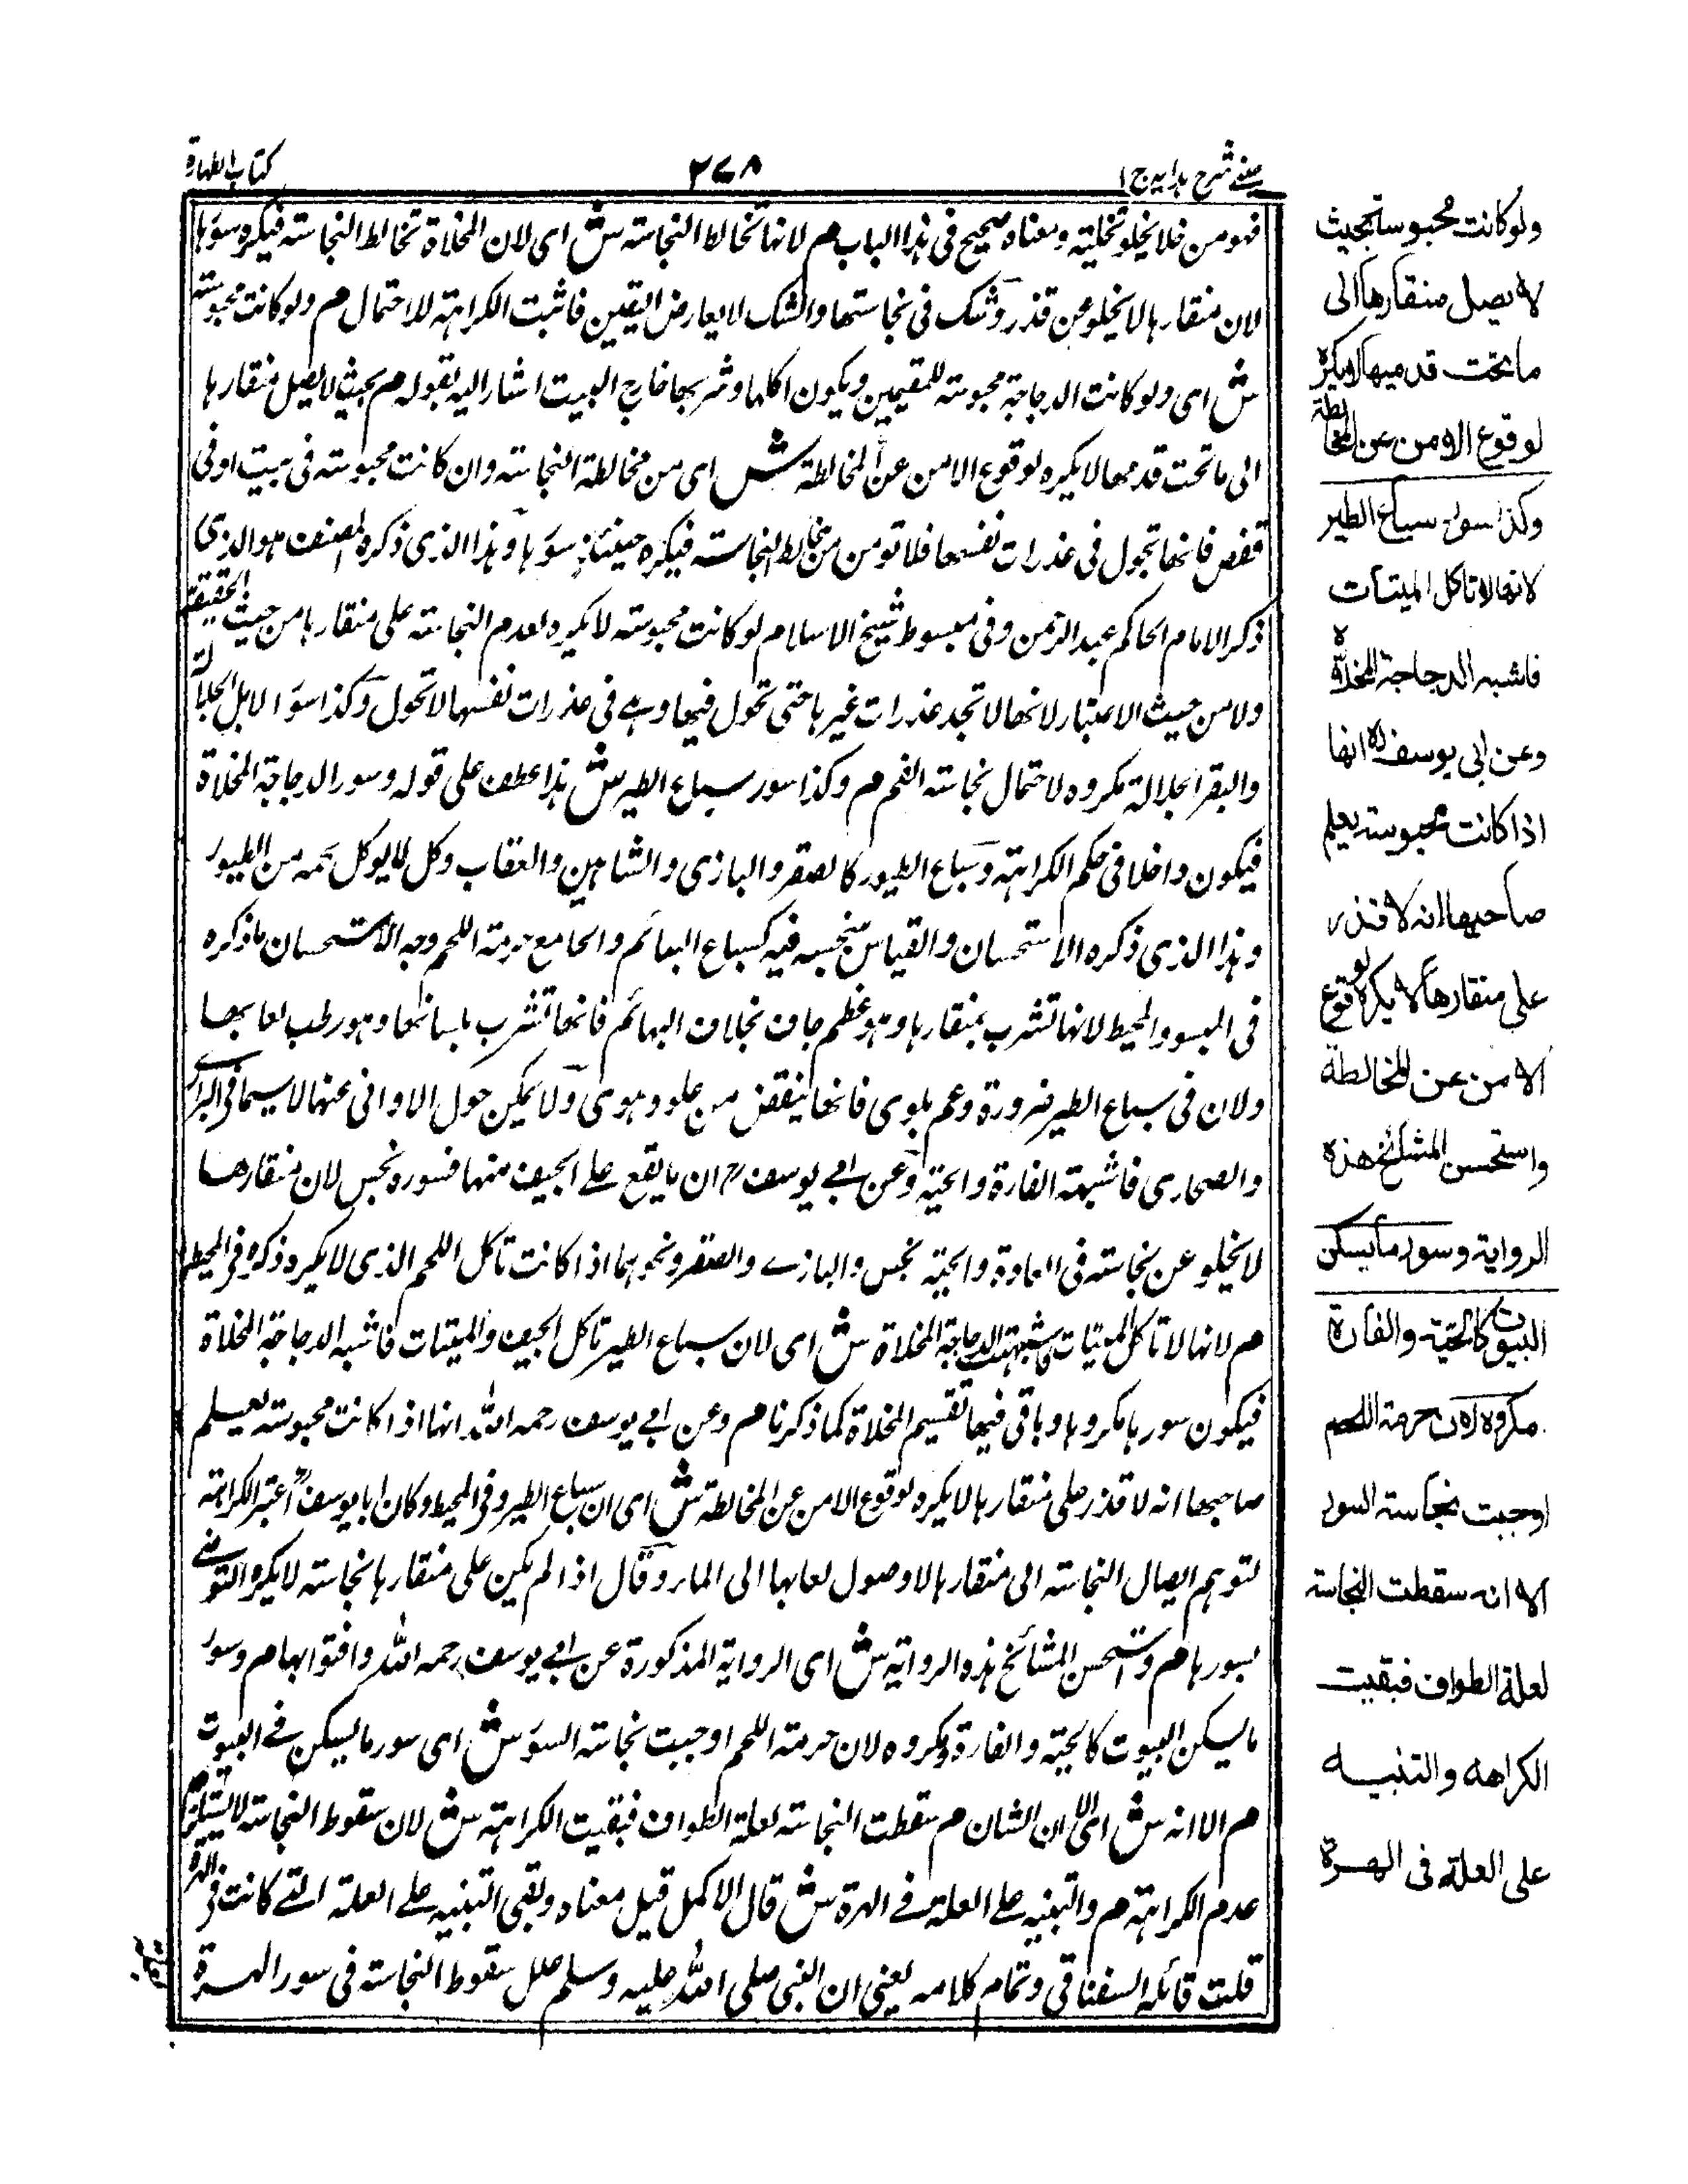 عينے شرح ہدایہ ج ۱
۲۷۸
کتاب الطہارة
فهو من خلا یخلو تخلیته ومعناه صحیح فی ہذا الباب م لانہا تخالط النجاسته ش ای لان المخلاة تخالط النجاسته فیکره سؤرہا
لان منقارہا لا یخلو عن قذر وشک فی نجاستها والشک لا یعارض الیقین فاثبت الکراہته للاحتمال م ولو کانت محبوسته
ش ای ولو کانت الدجاجة محبوسته للمقیمین ویکون اکلها وشربها خارج البیت اشار الیه بقوله م بحیث لا یصل منقارہا
الی ما تحت قدمیها لا یکره لوقوع الامن عن المخالطة ش ای من مخالطة النجاسته وان کانت محبوسته فی بیت او فی
قفص فانها تجول فی عذرات نفسها فلا تومن من تخالط النجاسته فیکره حینئذ سؤرہا وہذا الذی ذکره المصنف ہو الذی
ذکر الامام الحاکم عبدالرحمن وفی مبسوط شیخ الاسلام لو کانت محبوسته لا یکره لعدم النجاسته علی منقارہا من حیث الحقیقة
ولا من حیث الاعتبار لانها لا تجد عذرات غیرہا حتی تجول فیها وہے فی عذرات نفسها لا تجول وکذا سؤر الابل الجلالة
والبقر الجلالة مکروه لاحتمال نجاسته الفم م وکذا سور سباع الطیر ش ہذا عطف علی قوله وسور الدجاجة المخلاة
فیکون داخلا فی حکم الکراہته وسباع الطیور کالصقر والبازی والشاہین والعقاب وکل ما لا یوکل لحمه من الطیور
وہذا الذی ذکره الاستحسان والقیاس نجسه فیه کسباع البهائم والجامع حرمة اللحم وجه الاستحسان ما ذکره
فی المبسوط والمحیط لانها تشرب بمنقارہا وہو عظم جاف بخلاف البہائم فانها تشرب بلسانها وہو رطب بلعابها
ولان فی سباع الطیر ضرورة وعم بلوی فانها ینقض من علو وہوی ولا یمکن حول الاوانی عنہا لا سیما فی البراری
والصحاری فاشبہته الفارة والحیة وعن ابے یوسف رح ان ما یقع علے الجیف منہا فسوره نجس لان منقارہا
لا یخلو عن نجاسته فی العادة والحیة نجس والبازے والصقر ونحوہما اذا کانت تاکل اللحم الذی لا یکره وذکره فی المحیط
م لانہا لا تاکل المیتات فاشبہت الدجاجة المخلاة ش ای لان سباع الطیر تاکل الجیف والمیتات فاشبه الدجاجة المخلاة
فیکون سورہا مکروہا وباقی فیها تقسیم المخلاة کما ذکرنا م وعن ابے یوسف رحمه اللہ انها اذا کانت محبوسته یعلم
صاحبها انه لا قذر علی منقارہا لا یکره لوقوع الامن عن المخالطة ش ای ان سباع الطیر وفی المحیط وکان ابا یوسف رح اعتبر الکراہته
لتوہم ایصال النجاسته الی منقارہا لا وصول لعابہا الی الماء وقال اذا لم یکن علی منقارہا نجاسته لا یکره التوضے
بسورہا م واستحسن المشائخ ہذه الروایة ش ای الروایة المذکورة عن ابے یوسف رحمه اللہ وافتوا بہا م وسور
ما یسکن البیوت کالحیة والفارة مکروه لان حرمة اللحم اوجبت نجاسته السؤر ش ای سور ما یسکن فے البیوت
م الا انه ش ای الا ان الشان م سقطت النجاسته لعلة الطواف فبقیت الکراہته ش لان سقوط النجاسته لا یستلزم
عدم الکراہته م والتنبیه علے العلة فے الہرة ش قال الاکمل قیل معناه وبقی التنبیه علے العلة التے کانت فی الہرة
قلت قائله السغناقی وتمام کلامه یعنی ان النبی صلی اللہ علیه وسلم علل سقوط النجاسته فی سور الہرة
ولو کانت محبوسة بحیث
لا یصل منقارها الی
ما تحت قدمیها لا یکره
لوقوع الامن عن المخالطة
وکذا سور سباع الطیر
لانها لا تاکل المیتات
فاشبه الدجاجة المخلاة
وعن ابی یوسف رہ انها
اذا کانت محبوسته یعلم
صاحبها انه لا قذر
علی منقارها لا یکره لوقوع
الامن عن المخالطة
واستحسن المشائخ هذه
الروایة وسور ما یسکن
البیوت کالحیة والفارة
مکروه لان حرمة اللحم
اوجبت نجاسته السور
الا انه سقطت النجاسته
لعلة الطواف فبقیت
الکراهه والتنبیه
علی العلة فی الهرة